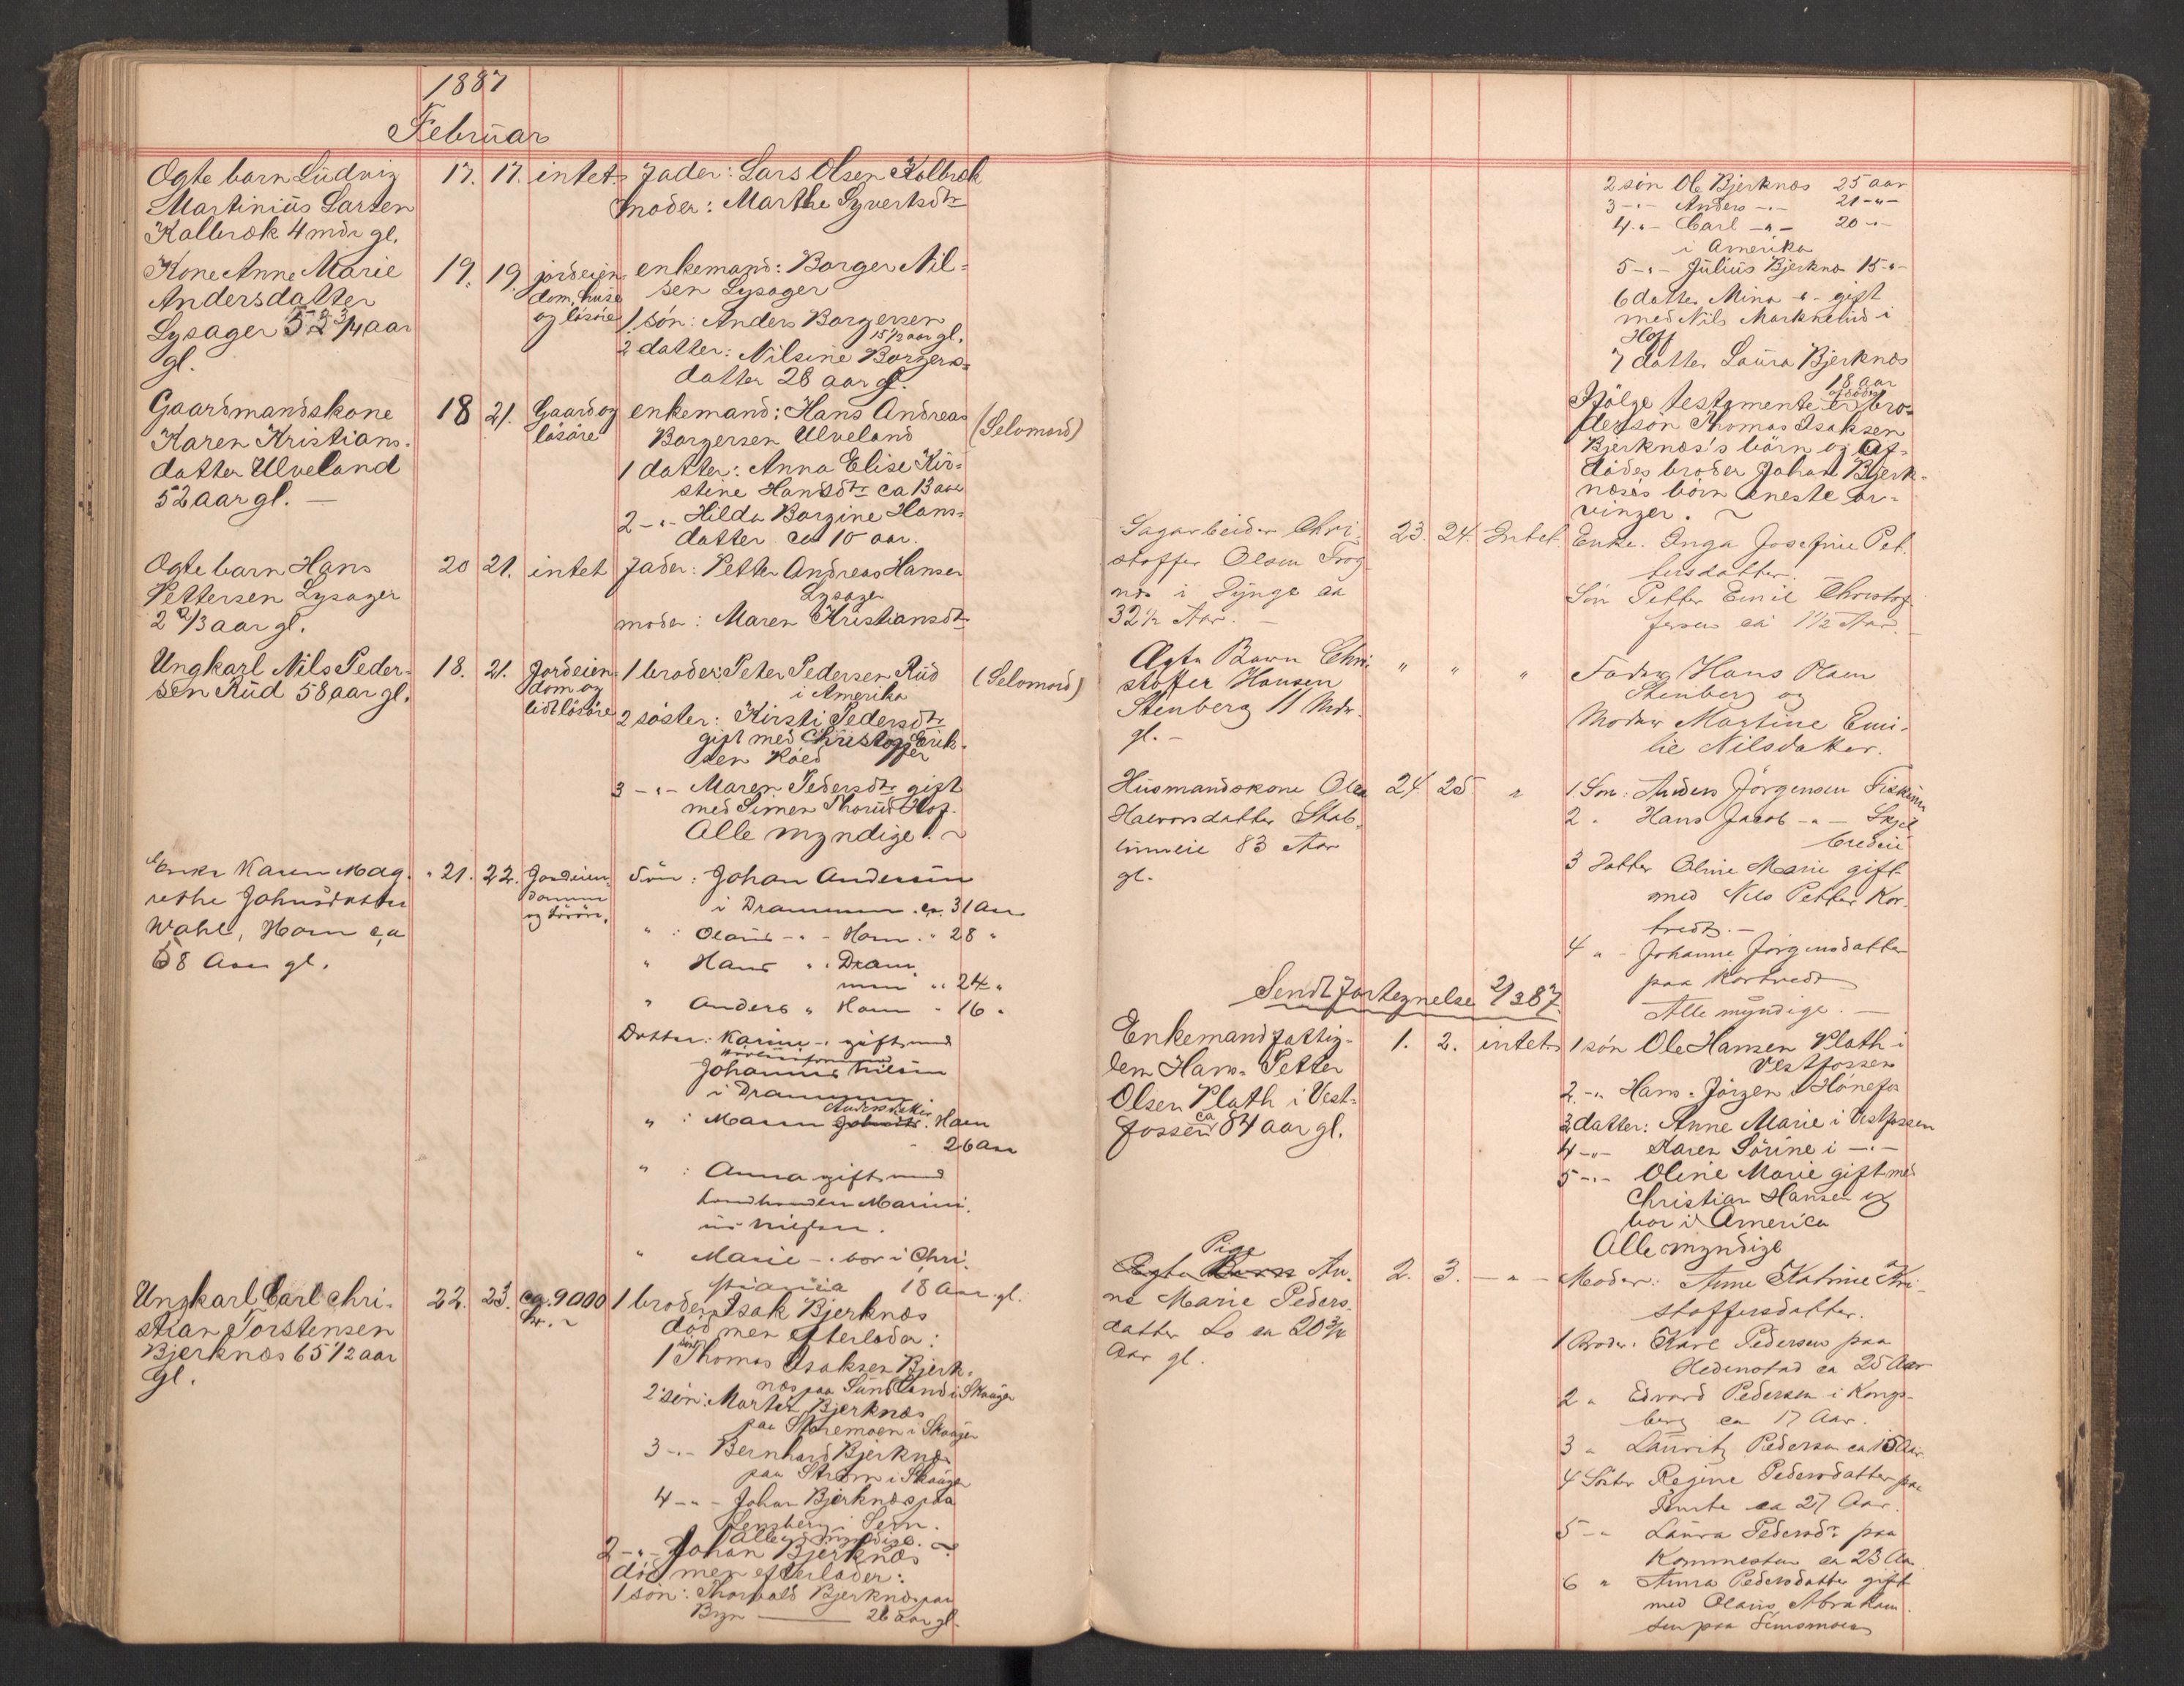 1887
Februar
Ogte barn Ludvig
Martinius Larsen
Kolbrek 4 mdr gl.
17. 17. intet.
Fader: Lars Olsen Kolbrek
Moder: Marthe Syvertsdtr
Kone Anne Marie
Andersdatter
Lysager 52 3/4 aar
gl.
19. 19. jordeien-
dom, huse
og løsøre
enkemand: Borger Nil-
sen Lysager
1 søn: Anders Borgersen
15 1/2 aar gl.
2 datter: Nilsine Borgers-
datter 28 aar gl.
Gaardmandskone
Karen Kristians-
datter Ulveland
52 aar gl. —
18 21. Gaard og
løsøre
enkemand: Hans Andreas
Borgersen Ulveland
(Selvmord)
1 datter: Anna Elise Kir-
stine Hansdtr ca 13 aar
2 -"- Hilda Borgine Hans-
datter ca 10 aar.
Ogte barn Hans
Pettersen Lysager
2 2/3 aar gl.
20 21. intet
Fader: Petter Andreas Hansen
Lysager
moder: Maren Kristiansdtr
Ungkarl Nils Peder-
sen Rud 58 aar gl.
18. 21. Jordeien-
dom og
lidt løsøre
1 broder: Peter Pedersen Rud
i Amerika
(Selvmord)
2 søster: Kirsti Pedersdtr
gift med Christoffer Erik-
sen
3 -"- Maren Pedersdtr gift
med Simen Thorud Hof.
Alle myndige. ~
Enke Karen Mag-
rethe Johnsdatter
Wahl, Ham ca
68 Aar gl.
21. 22. Jordeien-
domme
og løsøre.
Søn: Johan Andersen
i Drammen. ca. 31 Aar
" : Olaus -"- Ham. " 28 "
" Hans " . Dram-
men " 24 "
" Anders " Ham - 16 "
Datter: Karine -" gift med
Johannes Nilsen
i Drammen
" : Maren Andersdatter Ham
26 Aar
" : Anna gift med
Marini-
us Nilsen.
" Marie -" bor i Chri-
stiania 18 Aar gl.
Ungkarl Carl Chri-
stian Torstensen
Bjerknes 65 1/2 aar
gl.
22. 23. ca. 9000
kr. ~
1 broder: Isak Bjerknes
død men efterlader:
1 søn Thomas Isaksen Bjerk-
nes paa Sundland i Skauger
2 søn: Morten Bjerknes
paa Støremoen i Skauger
3 -"- Bernhard Bjerknes
paa Strøm i Skauger
4 -"- Johan Bjerknes paa
i Sem.
Alle myndige. ~
2 -"- Johan Bjerknes
død men efterlader:
1 søn: Thorvald Bjerknes paa
Byn — 26 aar gl.
2 søn Ole Bjerknes 25 aar
3 -"- Anders -"- 21 -"-
4 -"- Carl -"- 20 -"-
i Amerika
5 -"- Julius Bjerknes 15 -"-
6 datter Mina -"- gift
med Nils Marknelid i
Hoff
7 datter Laura Bjerknes
18 aar
Ifølge testamente er afdøde bro-
dersøn Thomas Isaksen
Bjerknes's børn og Af-
dødes broder Johan Bjerk-
neses børn eneste ar-
vinger. ~
Sagarbeider Chri-
stoffer Olsen Frog-
nes i Fynge ca
32 1/2 Aar. —
23. 24. Intet.
Enke. Inga Josefine Pet-
tersdatter.
Søn Petter Emil Christof-
fersen ca 1 1/2 Aar.
Ægte Barn Chri-
stoffer Hansen
Stenberg 11 Mdr.
gl. —
" " "
Fader Hans Olsen
Stenberg og
Moder Martine Emi-
lie Nilsdatter.
Husmandskone Olea
Halvorsdatter Stab-
83 Aar
gl.
24. 25. "
1 Søn: Anders Jørgensen Fiskum
2 " Hans Jacob -"-
3 Datter Oline Marie gift
med Nils Petter Kor-
tredt. —
4 " - Johanne Jørgensdatter
paa Kortredt
Alle myndige. —
Sendt fortegnelse 2/3 87.
Enkemand fattig-
lem Hans Petter
Olsen Plath i Vest-
fossen ca 84 aar gl.
1. 2. intet.
1 søn Ole Hansen Plath i
Vestfossen
2 -"- Hans Jørgen i Hønefos
3 datter: Anne Marie i Vestfossen
4 -"- Karen Sørine i -"-
5 -"- Oline Marie gift med
Christian Hansen og
bor i America
Alle myndige
Ægte Barn Pige An-
ne Marie Peders-
datter Lo ca 20 3/4
Aar gl.
2. 3. - " -
Moder: Anne Katrine Kri-
stoffersdatter.
1 Broder: Karl Pedersen paa
Hedenstad ca 25 Aar
2 " Edvard Pedersen i Kongs-
berg ca 17 Aar.
3 " Lauritz Pedersen ca 15 Aar.
4 Søster Regine Pedersdatter paa
ca 27 Aar.
5 -"- Laura Pedersdtr paa
Kommestun ca 23 Aar
6 " Anna Pedersdatter gift
med Olaus Abraham-
sen paa Simsmoen